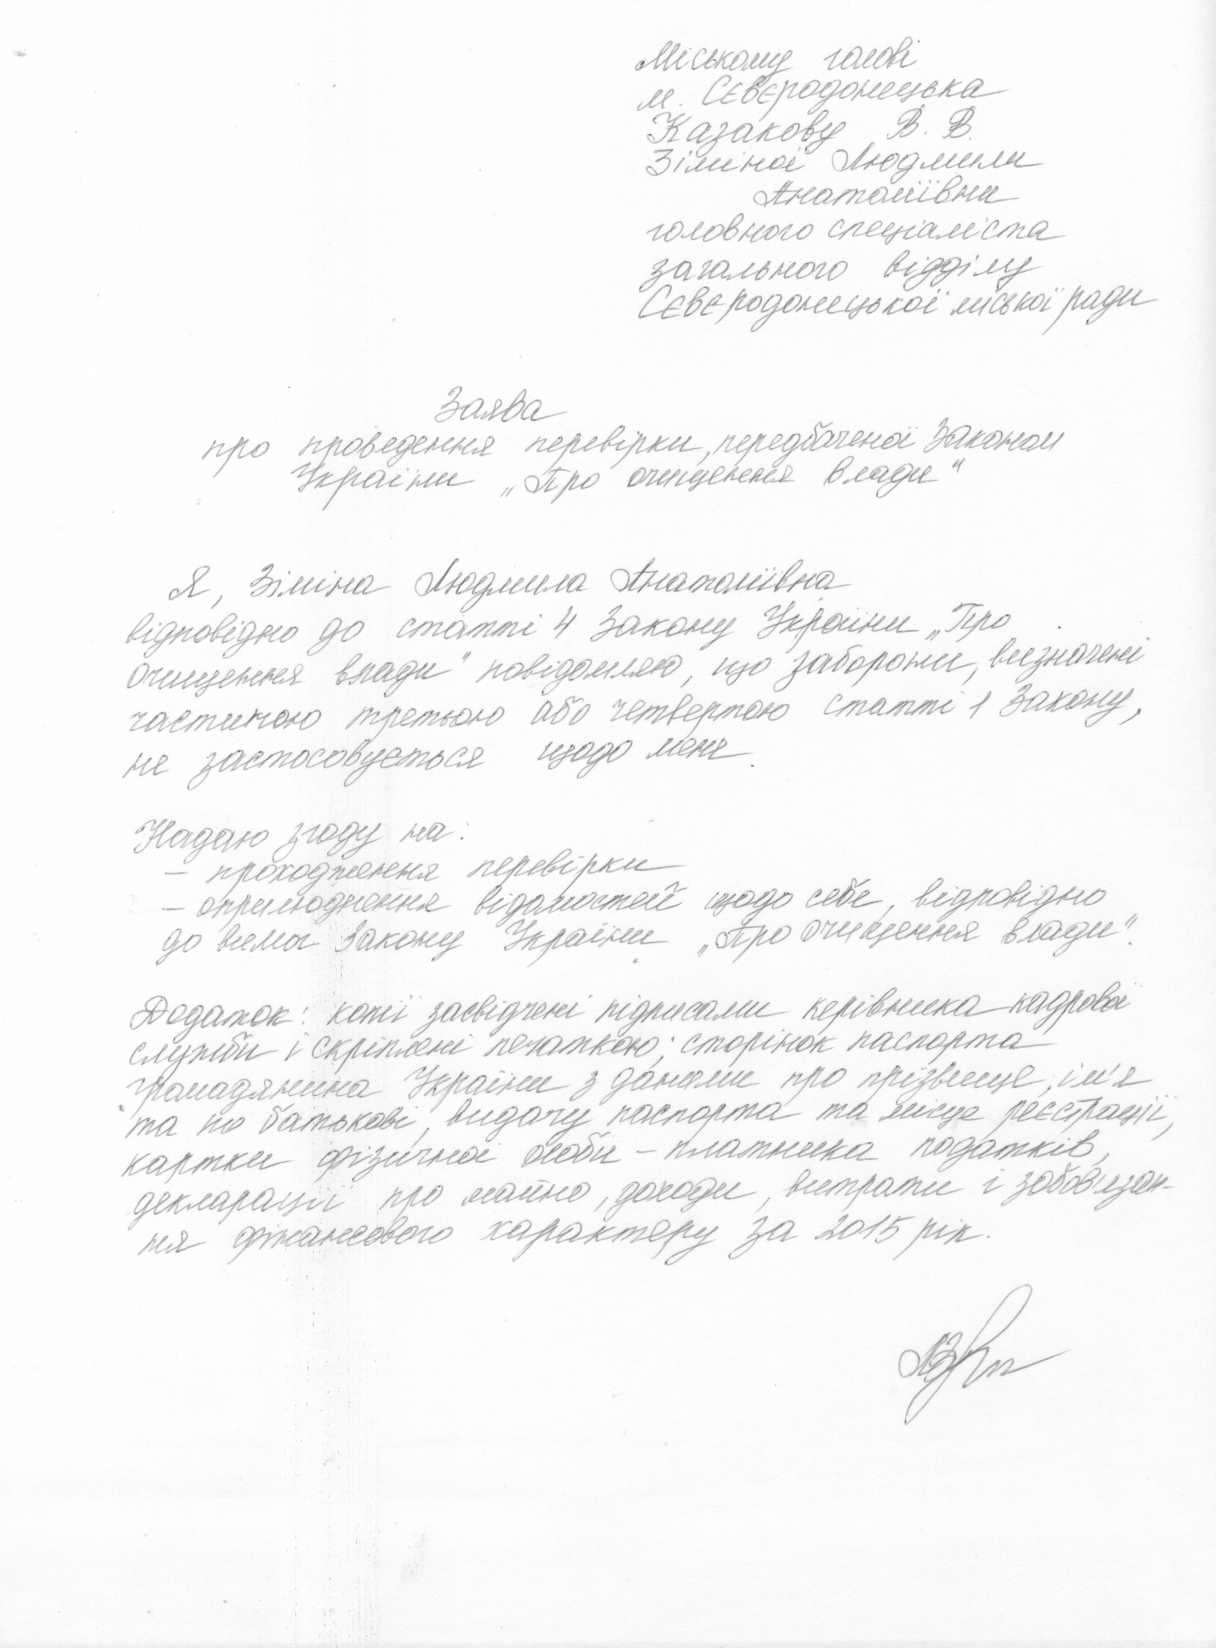 Міському голові
м. Сєвєродонецька
Казакову В. В.
Зіміної Людмили
Анатоліївни
головного спеціаліста
загального відділу
Сєвєродонецької міської ради
Заява
про проведення перевірки, передбаченої Законом
України „Про очищення влади"
Я, Зіміна Людмила Анатоліївна
відповідно до статті 4 Закону України „Про
очищення влади" повідомляю, що заборони, визначені
частиною третьою або четвертою статті 1 Закону,
не застосовується щодо мене.
Надаю згоду на:
– проходження перевірки
– оприлюднення відомостей щодо себе, відповідно
до вимог Закону України „Про очищення влади".
Додаток: копії засвідчені підписами керівника кадрової
служби і скріплені печаткою; сторінок паспорта
громадянина України з даними про прізвище, ім'я
та по батькові, видачу паспорта та місце реєстрації,
картки фізичної особи – платника податків,
декларації про майно, доходи, витрати і зобов'язан-
ня фінансового характеру за 2015 рік.